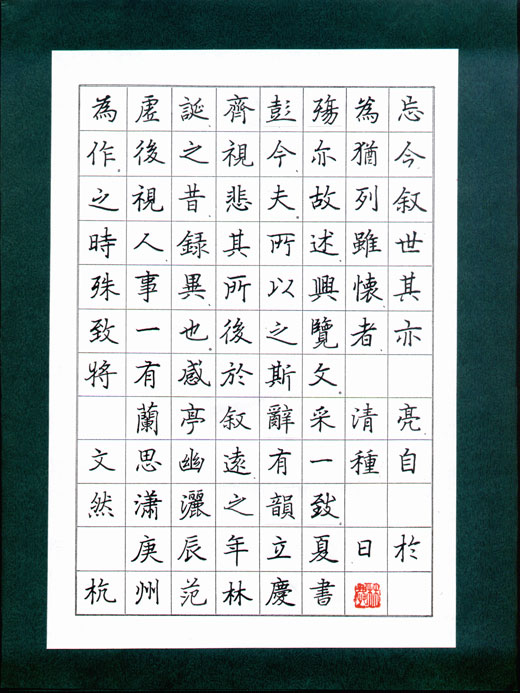 為虛誕齊彭殤為忘
作後之視今亦猶今
之視昔悲夫故列叙
時人録其所述雖世
殊事異所以興懷其
致一也後之覽者亦
將有感於斯文
蘭亭叙辭采清亮
文思幽遠有一種自
然瀟灑之韻致
庚辰年立夏日於
杭州范林慶書